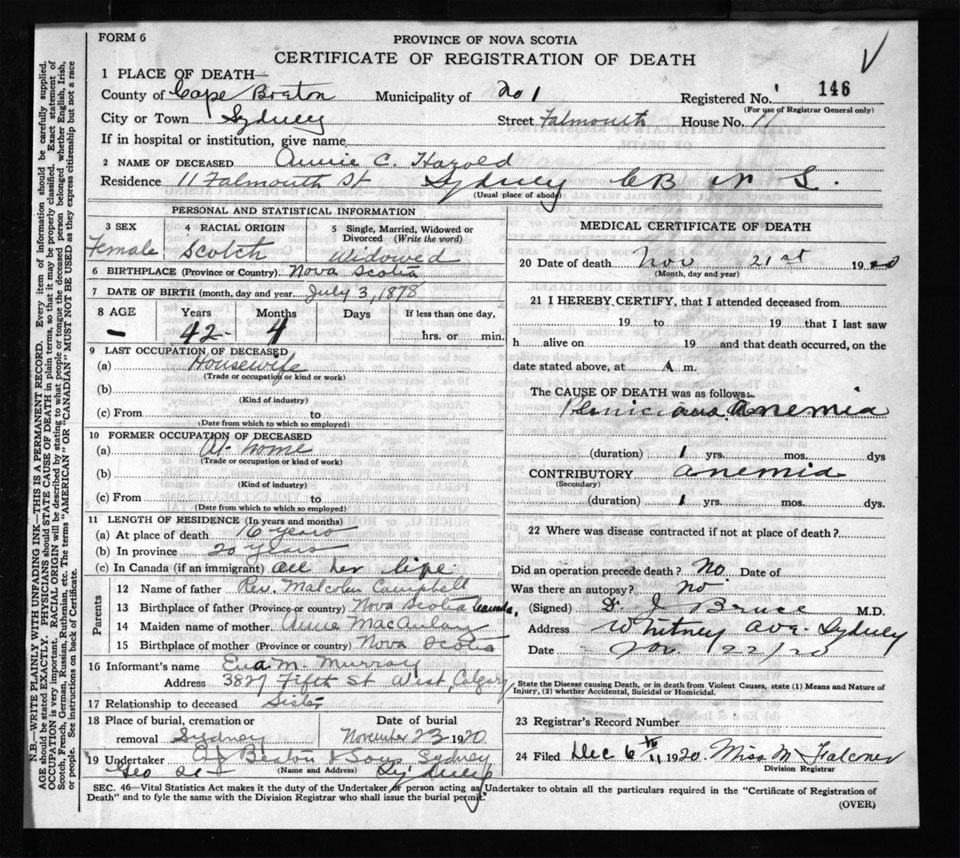 FORM 6
PROVINCE OF NOVA SCOTIA
CERTIFICATE OF REGISTRATION OF DEATH
1 PLACE OF DEATH—
County of Cape Breton Municipality of No 1 Registered No. 146
(For use of Registrar General only)
City or Town Sydney Street Falmouth House No. 11
If in hospital or institution, give name
2 NAME OF DECEASED Annie C. Harold
Residence 11 Falmouth St Sydney CB N S.
(Usual place of abode)
PERSONAL AND STATISTICAL INFORMATION
3 SEX 4 RACIAL ORIGIN 5 Single, Married, Widowed or Divorced (Write the word)
Female Scotch Widowed
6 BIRTHPLACE (Province or Country) Nova Scotia
7 DATE OF BIRTH (month, day and year July 3, 1878
8 AGE Years Months Days If less than one day,
— 42 - 4 hrs. or min.
9 LAST OCCUPATION OF DECEASED
(a) Housewife
(Trade or occupation or kind or work)
(b)
(Kind of industry)
(c) From to
(Date from which to which so employed)
10 FORMER OCCUPATION OF DECEASED
(a) At home
(Trade or occupation or kind or work)
(b)
(Kind of industry)
(c) From to
(Date from which to which so employed)
11 LENGTH OF RESIDENCE (In years and months)
(a) At place of death 16 years
(b) In province 20 years
(c) In Canada (if an immigrant) all her life
Parents
12 Name of father Rev. Malcolm Campbell
13 Birthplace of father (Province or country) Nova Scotia Canada,
14 Maiden name of mother Annie MacAulay
15 Birthplace of mother (Province or country) Nova Scotia
16 Informant's name M. Murray
Address 3827 Fifth St West, Calgary
17 Relationship to deceased Sister
18 Place of burial, cremation or removal Sydney
Date of burial November 23 1920
19 Undertaker Beaton & Sons Sydney
(Name and Address)
Geo St Sydney
MEDICAL CERTIFICATE OF DEATH
20 Date of death Nov 21st 1920
(Month, day and year)
21 I HEREBY CERTIFY, that I attended deceased from
19 to 19 that I last saw
h alive on 19 and that death occurred, on the
date stated above, at A m.
The CAUSE OF DEATH was as follows:
Pernicious Anemia
(duration) 1 yrs. mos. dys
CONTRIBUTORY anemia
(Secondary)
(duration) 1 yrs. mos. dys.
22 Where was disease contracted if not at place of death?
Did an operation precede death? No Date of
Was there an autopsy? No
(Signed) Dr J Bruce M.D.
Address Whitney Ave. Sydney
Date Nov. 22/20
State the Disease causing Death, or in death from Violent Causes, state (1) Means and Nature of Injury, (2) whether Accidental, Suicidal or Homicidal.
23 Registrar's Record Number
24 Filed Dec 6 1920 Miss M Falconer
Division Registrar
SEC. 46—Vital Statistics Act makes it the duty of the Undertaker or person acting as Undertaker to obtain all the particulars required in the "Certificate of Registration of
Death" and to fyle the same with the Division Registrar who shall issue the burial permit.
(OVER)
N.B.—WRITE PLAINLY WITH UNFADING INK—THIS IS A PERMANENT RECORD. Every item of information should be carefully supplied.
AGE should be stated EXACTLY. PHYSICIANS should STATE CAUSE OF DEATH in plain terms, so that it may be properly classified. Exact statement of
OCCUPATION is very important. RACIAL ORIGIN will be described by stating to what people or tongue the deceased person belonged whether English, Irish,
Scotch, French, German, Russian, Ruthenian, etc. The terms "AMERICAN" OR "CANADIAN" MUST NOT BE USED as they express citizenship but not a race
or people. See instructions on back of Certificate.